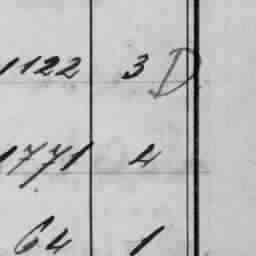 1122 3 D
1771 4
64 1